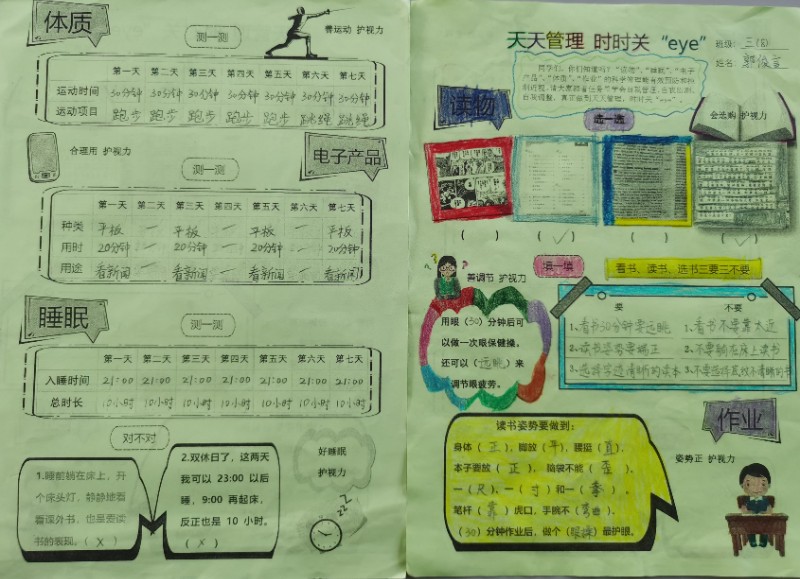 体质
测一测
善运动 护视力
第一天 第二天 第三天 第四天 第五天 第六天 第七天
运动时间 30分钟 30分钟 30分钟 30分钟 30分钟 30分钟 30分钟
运动项目 跑步 跑步 跑步 跑步 跑步 跳绳 跳绳
合理用 护视力
测一测
电子产品
第一天 第二天 第三天 第四天 第五天 第六天 第七天
种类 平板 — 平板 — 平板 — 平板
用时 20分钟 — 20分钟 — 20分钟 — 20分钟
用途 看新闻 — 看新闻 — 看新闻 — 看新闻
睡眠
测一测
第一天 第二天 第三天 第四天 第五天 第六天 第七天
入睡时间 21:00 21:00 21:00 21:00 21:00 21:00 21:00
总时长 10小时 10小时 10小时 10小时 10小时 10小时 10小时
对不对
1.睡前躺在床上，开
个床头灯，静静地看
看课外书，也是爱读
书的表现。（×）
2.双休日了，这两天
我可以 23:00 以后
睡，9:00 再起床，
反正也是 10 小时。
（×）
好睡眠
护视力
天天管理 时时关 “eye”
班级：三(8)
姓名：
同学们，你们知道吗？“读物”、“睡眠”、“电子
产品”、“体质”、“作业”的科学管理能有效预防和控
制近视。请大家
自我调整，真正做到天天管理，时时关“eye”。
读物
选一选
会选购 护视力
（ ） （✓） （ ） （✓）
善调节 护视力
填一填
看书、读书、选书三要三不要
用眼（30）分钟后可
以做一次眼保健操。
还可以（远眺）来
调节眼疲劳。
要 不要
1、看书30分钟要远眺 1、看书不要靠太近
2、读书姿势要端正 2、不要躺在床上读书
3、选择字迹清晰的读本 3、不要选择直纹不清晰的书
作业
姿势正 护视力
读书姿势要做到：
身体（正），脚放（平），腰挺（直），
本子要放（正），脑袋不能（歪），
一（尺）、一（寸）和一（拳），
笔杆（靠）虎口，手腕不（弯曲），
（30）分钟作业后，做个（眼操）最护眼。